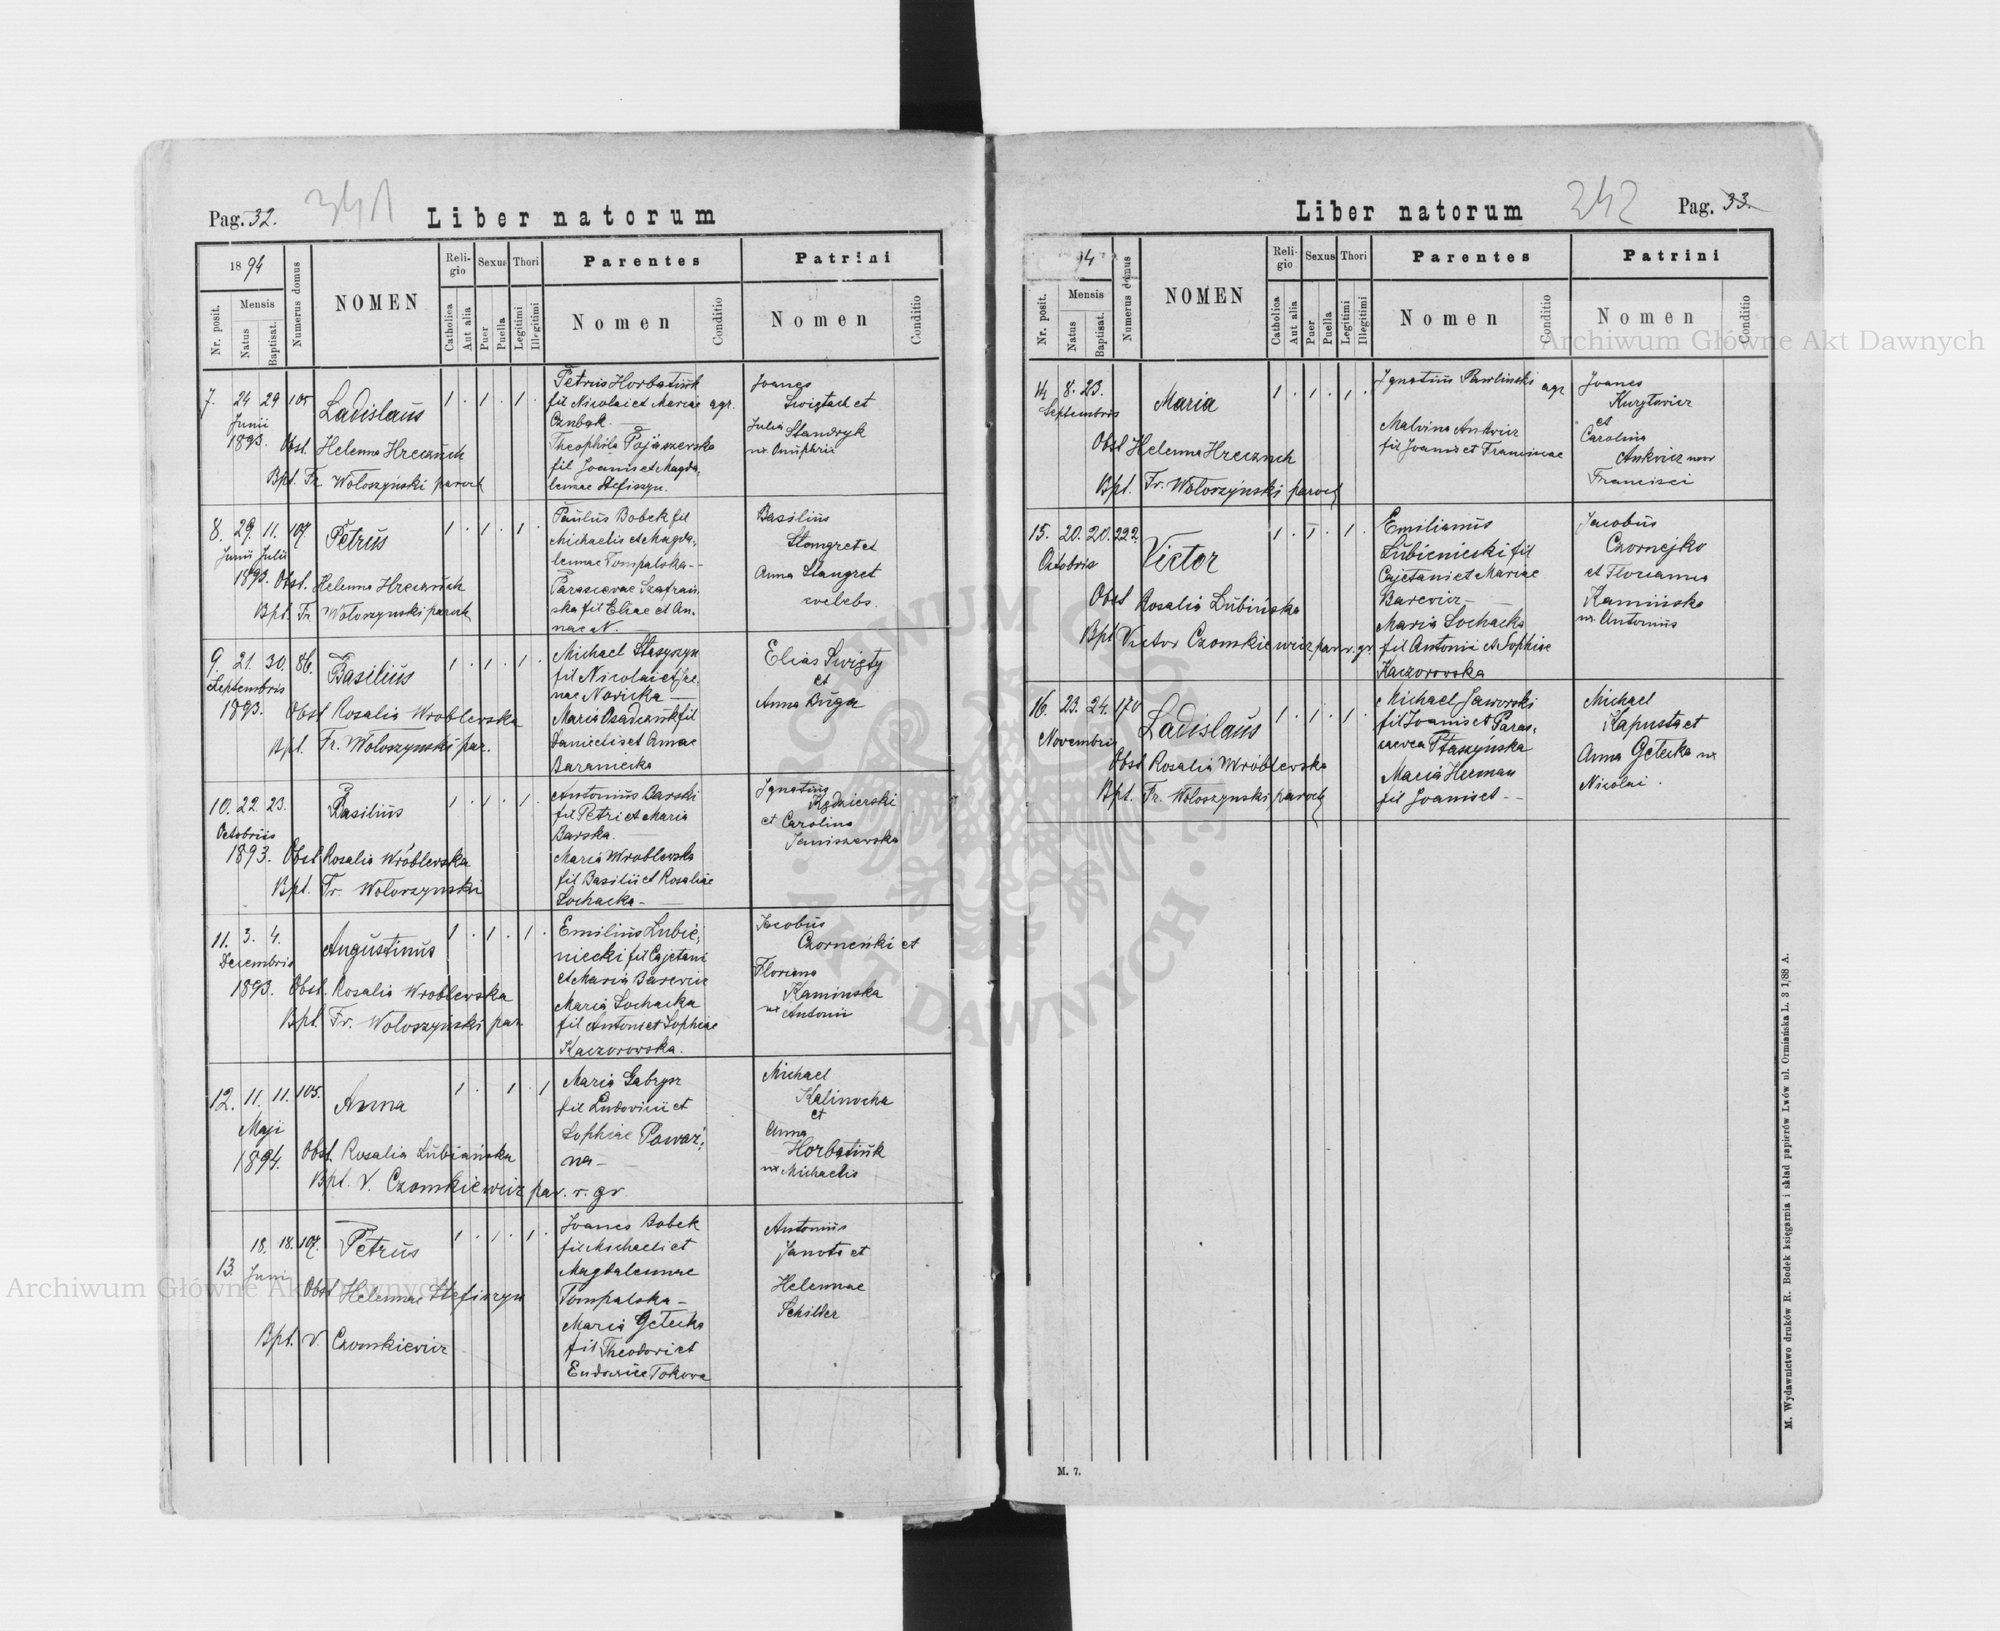 Pag. 32.
341
Liber natorum
1894
Numerus domus
NOMEN
Religio
Sexus
Thori
Parentes
Patrini
Nr. posit.
Mensis
Natus
Baptisat.
Catholica
Aut alia
Puer
Puella
Legitimi
Illegitimi
Nomen
Conditio
Nomen
Conditio
7. 24 29 105 Ladislaus 1 . 1 . 1 .
Junii
1893. Obst. Helenna Hreczuch
Bpt. Fr. Wołoszyński paroch
Petrus Horbatiuk
fil Nicolai et Mariae agr.
Theophila
fil Joannis et Magda-
lennae Stefiszyn.
Joannes
Swigtach et
Julia
Standryk
ux. Onuphrii
8. 29. 11. 107. Petrus 1 . 1 . 1 .
Junii Julii
1893. Obst. Helenna Hreczuch
Bpt. Fr. Wołoszynski paroch
Paulus Bobek fil
Michaelis et Magda-
lennae Tompalska -
Parascevae Szafrań-
ska fil Eliae et An-
nae N. —
Basilius
Stangret et
Anna Stangret
coelebs.
9. 21. 30. 86. Basilius 1 . 1 . 1 .
Septembris
1893. Obst Rosalia Wroblewska
Bpt. Fr. Wołoszynski par.
Michael Staszyszyn
fil Nicolai et Ire-
nae Novicka —
Maria Osadczuk fil
Danielis et Annae
Baraniecka
Elias Swięty
et
Anna Buga
10. 22. 23. Basilius 1 . 1 . 1 .
Octobris
1893. Obst Rosalia Wróblewska
Bpt. Fr. Wołoszynski
Antonius Barski
fil Petri et Maria
Barska. —
Maria Wroblewska
fil Basilii et Rosaliae
Sochacka - —
Ignatius
Kędzierski
et Carolina
Janiszewska
11. 3. 4. Augustinus 1 . 1 . 1 .
Decembris
1893. Obst. Rosalia Wroblewska
Bpt. Fr. Wołoszyński par.
Emilius Łubie-
niecki fil Cajetani
et Maria Barewicz
Maria Sochacka
fil Antoni et Sophiae
Kaczorowska.
Jacobus
Czorneński et
Floriana
Kaminska
ux Antonii
12. 11. 11. 105. Anna 1 . 1 1
Maji
1894. Obst. Rosalia Lubiańska
Bpt. V. Czomkiewicz par. r. gr.
Maria Gabrysz
fil Ludovici et
Sophiae Powaź-
na —
Michael
Kalinocha
et
Anna
Horbatiuk
ux Michaelis
13. 18. 18. 107. Petrus 1 . 1 . 1 .
Juni
Obst Helennae Stefiszyn
Bpt. V. Czomkiewicz
Joanes Bobek
fil Michaeli et
Magdalennae
Tompalska -
Maria Getecka
fil Theodori et
Eudoxiae Tokova
Antonius
Janota et
Helennae
Schiller
242
Liber natorum
Pag. 33.
94
Numerus domus
NOMEN
Religio
Sexus
Thori
Parentes
Patrini
Nr. posit.
Mensis
Natus
Baptisat.
Catholica
Aut alia
Puer
Puella
Legitimi
Illegitimi
Nomen
Conditio
Nomen
Conditio
14 8. 23. Maria 1 . 1 . 1 .
Septembris
Obst Helenna Hreczuch
Bpt. Fr. Wołoszyński paroch
Ignatius Pawlinski agr
Malvina Ankwicz
fil Joannis et Francinae
Joanes
et
Carolina
Ankwicz uxor
Francisci
15. 20. 20. 222. Victor 1 . 1 . 1 .
Octobris
Obst Rosalia Lubińska
Bpt Victor Czomkiewicz par. r. gr.
Emilianus
Łubieniecki fil
Cajetani et Mariae
Barewicz —
Maria Sochacka
fil Antonii et Sophiae
Kaczorowska
Jacobus
Czornejko
et Florianna
Kamińska
ux. Antonius
16. 23. 24. 170 Ladislaus 1 . 1 . 1 .
Novembris
Obst Rosalia Wróblewska
Bpt. Fr. Wołoszynski paroch
Michael Jaworski
fil Joannis et Paras-
cevca Ptaszyńska
Maria Herman
fil Joannis et - -
Michael
Kapusta et
Anna Getecka ux
Nicolai .
M. 7.
M. Wydawnictwo druków R. Bodek księgarnia i skład papierów Lwów ul. Ormiańska L. 3 1/88 A.
Archiwum Główne Akt Dawnych
Archiwum Główne Akt Dawnych
ARCHIWUM GŁÓWNE
AKT DAWNYCH